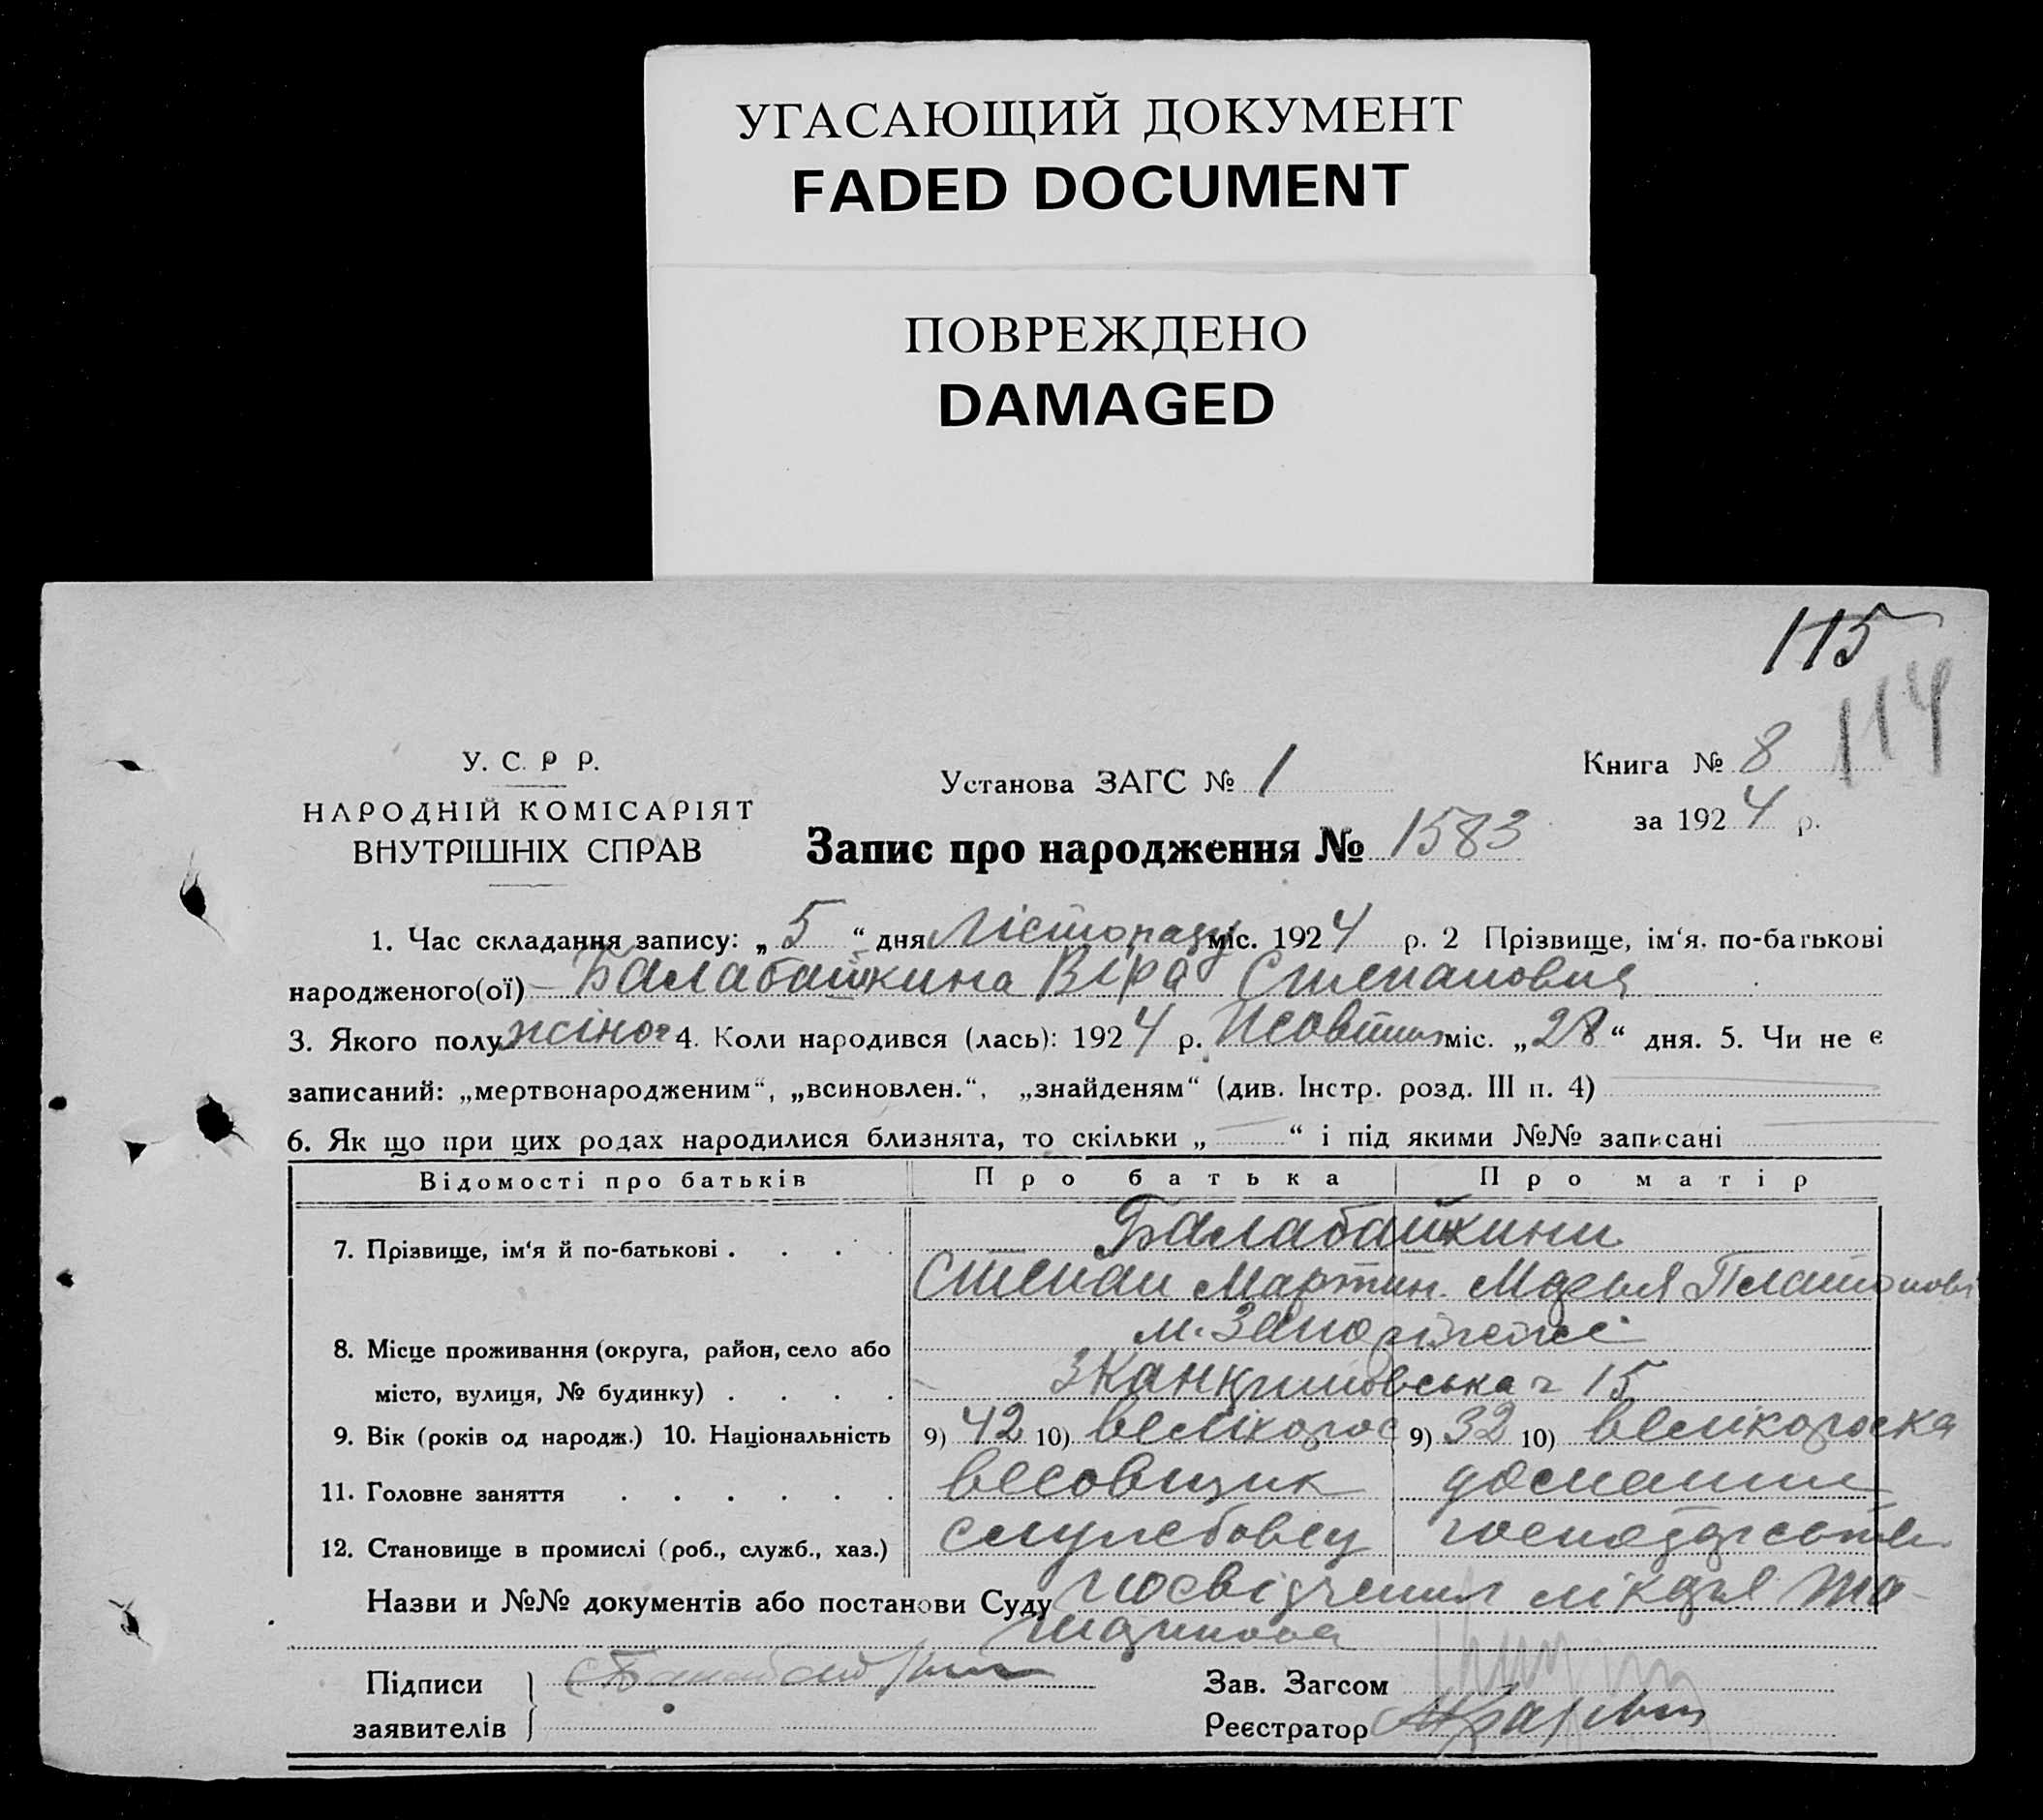 УГАСАЮЩИЙ ДОКУМЕНТ
FADED DOCUMENT
ПОВРЕЖДЕНО
DAMAGED
115
114
У. С. Р Р.
НАРОДНІЙ КОМІСАРІЯТ
ВНУТРІШНІХ СПРАВ
Установа ЗАГС № 1
Книга № 8
за 1924 р.
Запис про народження № 1583
1. Час складання запису: „ 5 “ дня Лістопаду міс. 1924 р. 2 Прізвище, ім‘я, по-батькові
народженого(ої) Балабайкина Віра Степановня
3. Якого полу жіноч 4. Коли народився (лась): 1924 р. Жовтня міс. „28“ дня. 5. Чи не є
записаний: „мертвонародженим“, „всиновлен.“, „знайденям“ (див. Інстр. розд. III п. 4)
6. Як що при цих родах народилися близнята, то скільки „ “ і під якими №№ записані
Відомості про батьків Про батька Про матір
7. Прізвище, ім‘я й по-батькові . . . . Балабайкини
Степан Мартин. Марья Платонові
8. Місце проживання (округа, район, село або м. Запоріжжє
місто, вулиця, № будинку) . . . . 15
9. Вік (років од народж.) 10. Національність 9) 42 10) велікорос 9) 32 10) велікороска
11. Головне заняття . . . . . . весовщик домашнє
12. Становище в промислі (роб., служб., хаз.) службовец господарство
Назви и №№ документів або постанови Суду посвідчення лікаря
Підписи
заявителів
Зав. Загсом
Реєстратор